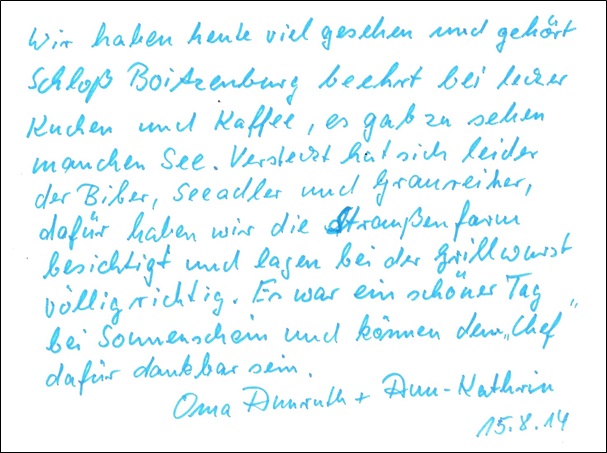 Wir haben heute viel gesehen und gehört
Schloß Boitzenburg beehrt bei lecker
Kuchen und Kaffee, es gab zu sehen
manchen See. Versteckt hat sich leider
der Biber, Seeadler und Graureiher,
dafür haben wir die Straußenfarm
besichtigt und lagen bei der Grillwurst
völlig richtig. Er war ein schöner Tag
bei Sonnenschein und können dem „Chef"
dafür dankbar sein.
Oma Annruth + Ann-Kathrin
15.8.14